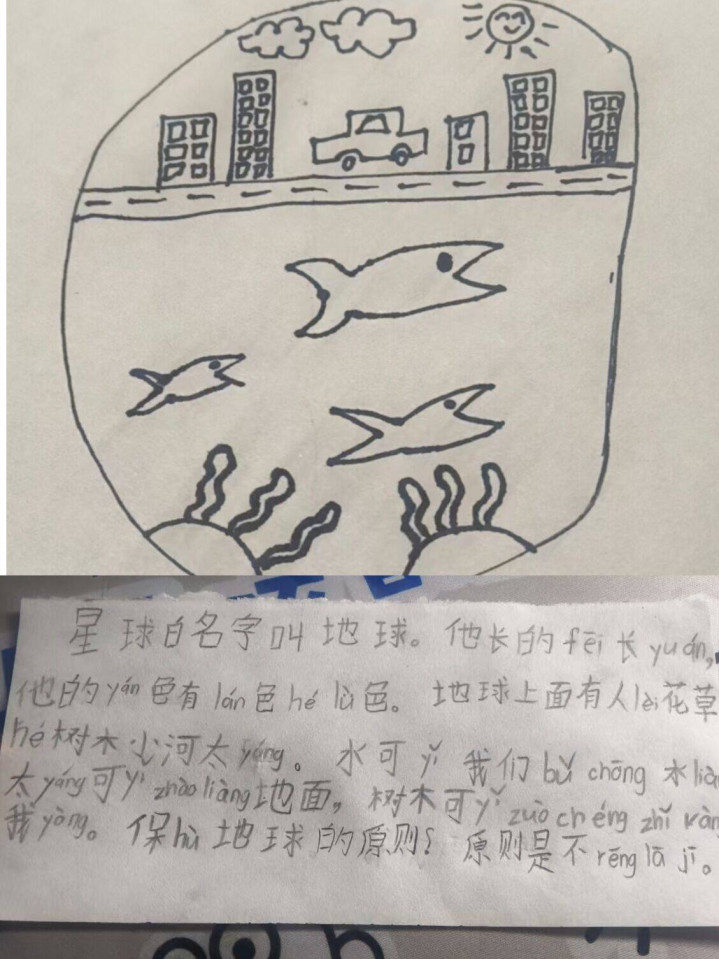 星球白名字叫地球。他长的fēi长yuán,
他的yán色有lán色hé lǜ色。地球上面有人lèi花草
hé树木小河太yáng。水可yǐ我们bǔ chōng水
太yáng可yǐ zhào liàng地面,树木可yǐ zuò chéng zhǐ ràng
我yòng。保hù地球的原则?原则是不rēng lā jī。